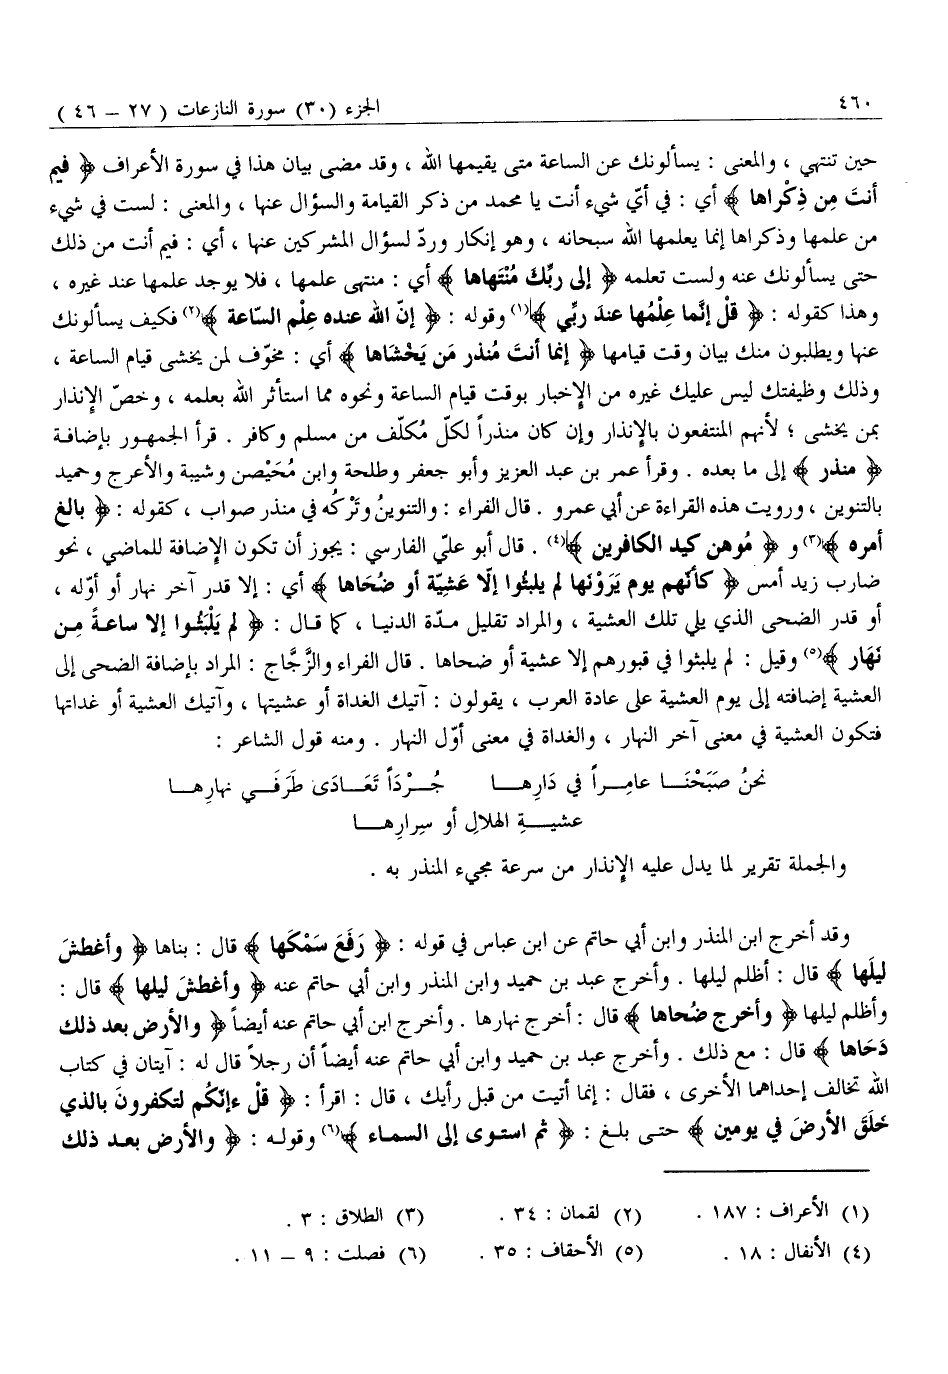 ٤٦٠
الجزء (٣٠) سورة النازعات ( ٢٧ – ٤٦ )
حين تنتهي ، والمعنى : يسألونك عن الساعة متى يقيمها الله ، وقد مضى بيان هذا في سورة الأعراف ﴿ فيم
أنتَ مِن ذِكْراها ﴾ أي : في أيّ شيء أنت يا محمد من ذكر القيامة والسؤال عنها ، والمعنى : لست في شيء
من علمها وذكراها إنما يعلمها الله سبحانه ، وهو إنكار وردّ لسؤال المشركين عنها ، أي : فيم أنت من ذلك
حتى يسألونك عنه ولست تعلمه ﴿ إلى ربِّكَ مُنْتَهاها ﴾ أي : منتهى علمها ، فلا يوجد علمها عند غيره ،
وهذا كقوله : ﴿ قلْ إنَّما عِلْمُها عندَ ربِّي ﴾(١) وقوله : ﴿ إنّ الله عنده عِلْم السّاعة ﴾(٢) فكيف يسألونك
عنها ويطلبون منك بيان وقت قيامها ﴿ إنما أنتَ مُنذر مَن يَخْشَاها ﴾ أي : مخوّف لمن يخشى قيام الساعة ،
وذلك وظيفتك ليس عليك غيره من الإخبار بوقت قيام الساعة ونحوه مما استأثر الله بعلمه ، وخصّ الإنذار
بمن يخشى ؛ لأنهم المنتفعون بالإنذار وإن كان منذراً لكلّ مُكلّف من مسلم وكافر . قرأ الجمهور بإضافة
﴿ منذر ﴾ إلى ما بعده . وقرأ عمر بن عبد العزيز وأبو جعفر وطلحة وابن مُحَيْصن وشيبة والأعرج وحميد
بالتنوين ، ورويت هذه القراءة عن أبي عمرو . قال الفراء : والتنوينُ وتَرْكُه في منذر صواب ، كقوله : ﴿ بالغ
أمره ﴾(٣) و ﴿ مُوهن كيد الكافرين ﴾(٤) . قال أبو عليّ الفارسي : يجوز أن تكون الإضافة للماضي ، نحو
ضارب زيد أمس ﴿ كأنّهم يوم يَرَوْنَها لم يلبثُوا إلّا عَشيّة أو ضُحَاها ﴾ أي : إلا قدر آخر نهار أو أوّله ،
أو قدر الضحى الذي يلي تلك العشية ، والمراد تقليل مدّة الدنيا ، كما قال : ﴿ لم يَلْبَثُوا إلا ساعةً مِن
نَهَار ﴾(٥) وقيل : لم يلبثوا في قبورهم إلا عشية أو ضحاها . قال الفراء والزَّجَّاج : المراد بإضافة الضحى إلى
العشية إضافته إلى يوم العشية على عادة العرب ، يقولون : آتيك الغداة أو عشيتها ، وآتيك العشية أو غداتها
فتكون العشية في معنى آخر النهار ، والغداة في معنى أوّل النهار . ومنه قول الشاعر :
نحنُ صَبَحْنَا عامِراً في دَارِها جُرْدَاً تَعَادَى طَرَفَي نهارِها
عشيةِ الهلالِ أو سِرارِها
والجملة تقرير لما يدل عليه الإنذار من سرعة مجيء المنذر به .
وقد أخرج ابن المنذر وابن أبي حاتم عن ابن عباس في قوله : ﴿ رَفَعَ سَمْكَها ﴾ قال : بناها ﴿ وأغطشَ
ليلَها ﴾ قال : أظلم ليلها . وأخرج عبد بن حميد وابن المنذر وابن أبي حاتم عنه ﴿ وأغطشَ ليلها ﴾ قال :
وأظلم ليلها ﴿ وأخرج ضُحاها ﴾ قال : أخرج نهارها . وأخرج ابن أبي حاتم عنه أيضاً ﴿ والأرض بعد ذلك
دَحَاها ﴾ قال : مع ذلك . وأخرج عبد بن حميد وابن أبي حاتم عنه أيضاً أن رجلاً قال له : آيتان في كتاب
الله تخالف إحداهما الأخرى ، فقال : إنما أتيت من قبل رأيك ، قال : اقرأ : ﴿ قلْ ءإنّكُم لتكفرونَ بالذي
خَلَقَ الأرضَ في يومين ﴾ حتى بلغ : ﴿ ثم استوى إلى السماء ﴾(٦) وقوله : ﴿ والأرض بعد ذلك
(١) الأعراف : ١٨٧ . (٢) لقمان : ٣٤ . (٣) الطلاق : ٣ .
(٤) الأنفال : ١٨ . (٥) الأحقاف : ٣٥ . (٦) فصلت : ٩ – ١١ .